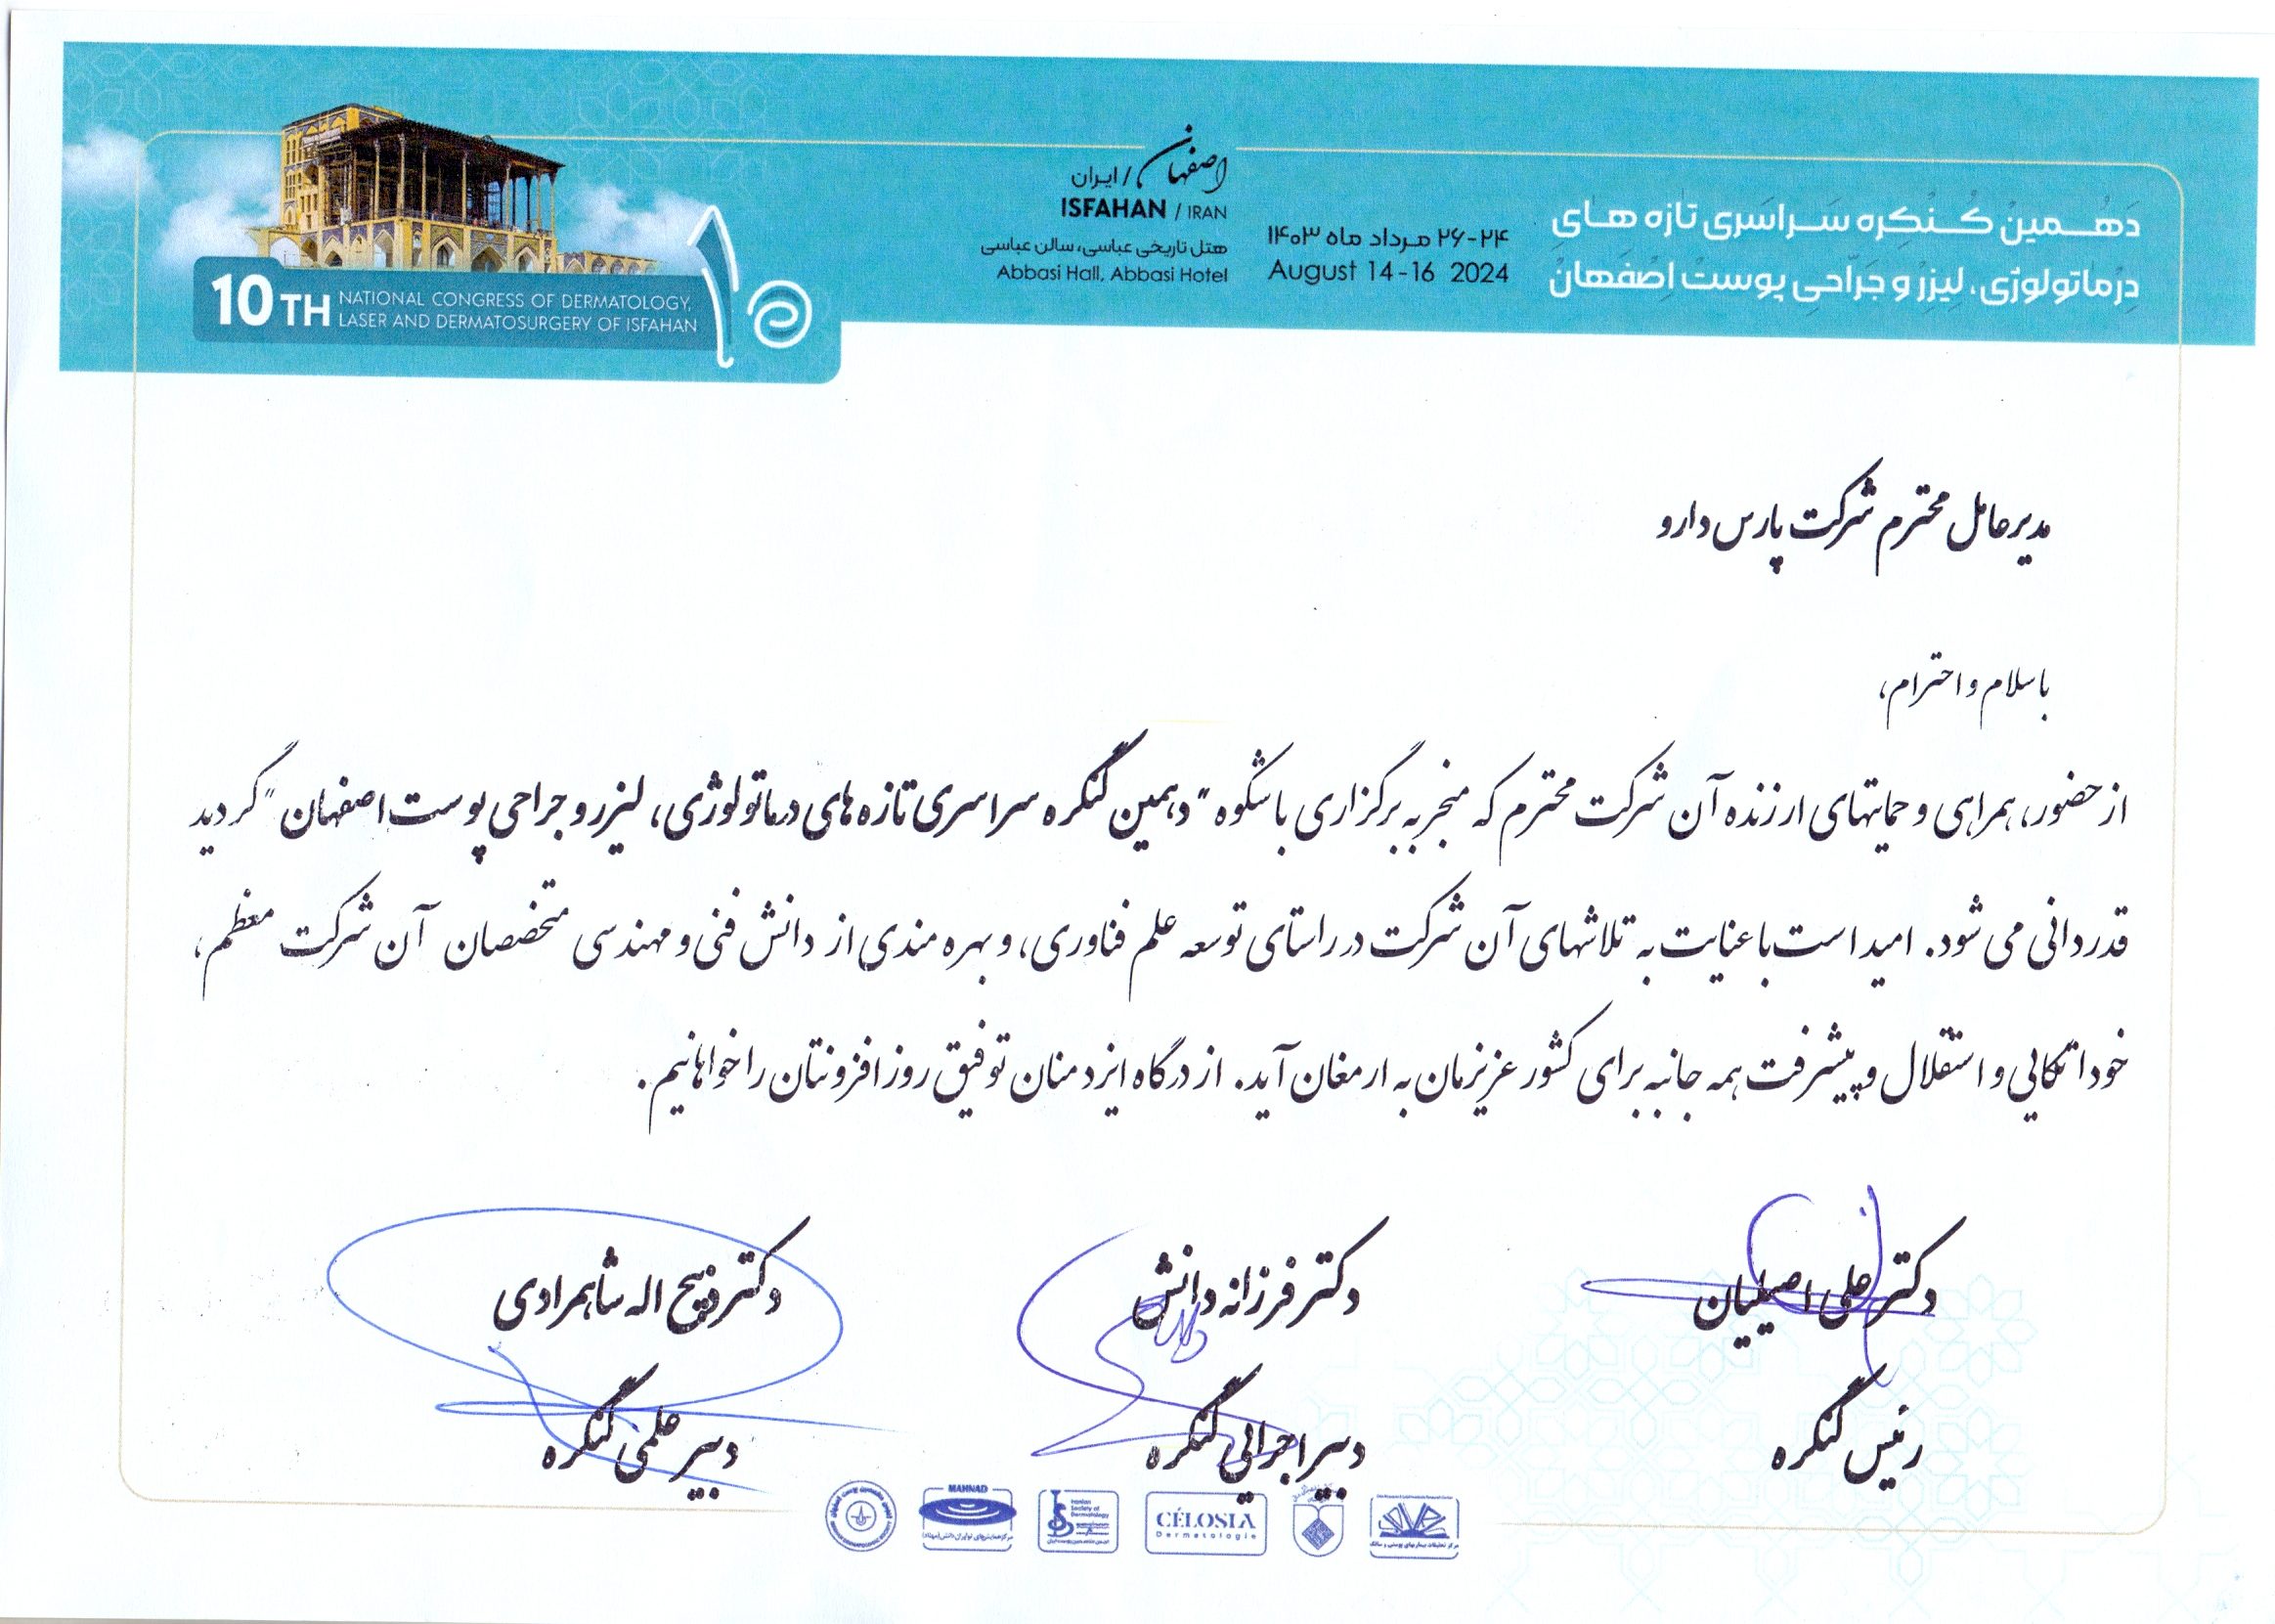 دهمین کنگره سراسری تازه های
درماتولوژی، لیزر و جراحی پوست اصفهان
۲۴-۲۶ مرداد ماه ۱۴۰۳
August 14-16 2024
اصفهان / ایران
ISFAHAN / IRAN
هتل تاریخی عباسی، سالن عباسی
Abbasi Hall, Abbasi Hotel
10TH NATIONAL CONGRESS OF DERMATOLOGY,
LASER AND DERMATOSURGERY OF ISFAHAN
۱۰
مدیرعامل محترم شرکت پارس دارو
باسلام و احترام،
از حضور، همراهی و حمایتهای ارزنده آن شرکت محترم که منجر به برگزاری باشکوه "دهمین کنگره سراسری تازه های درماتولوژی، لیزر و جراحی پوست اصفهان" گردید
قدردانی می شود. امید است با عنایت به تلاشهای آن شرکت در راستای توسعه علم فناوری، و بهره مندی از دانش فنی و مهندسی متخصصان آن شرکت معظم،
خوداتکایی و استقلال و پیشرفت همه جانبه برای کشور عزیزمان به ارمغان آید. از درگاه ایزد منان توفیق روزافزونتان را خواهانیم.
دکتر علی اصیلیان
رئیس کنگره
دکتر فرزانه دانش
دبیر اجرایی کنگره
دکتر ذبیح اله شاهمرادی
دبیر علمی کنگره
MAHNAD
Iranian
Society of
Dermatology
CÉLOSIA
Dermatologie
مرکز تحقیقات بیماریهای پوستی و سالک